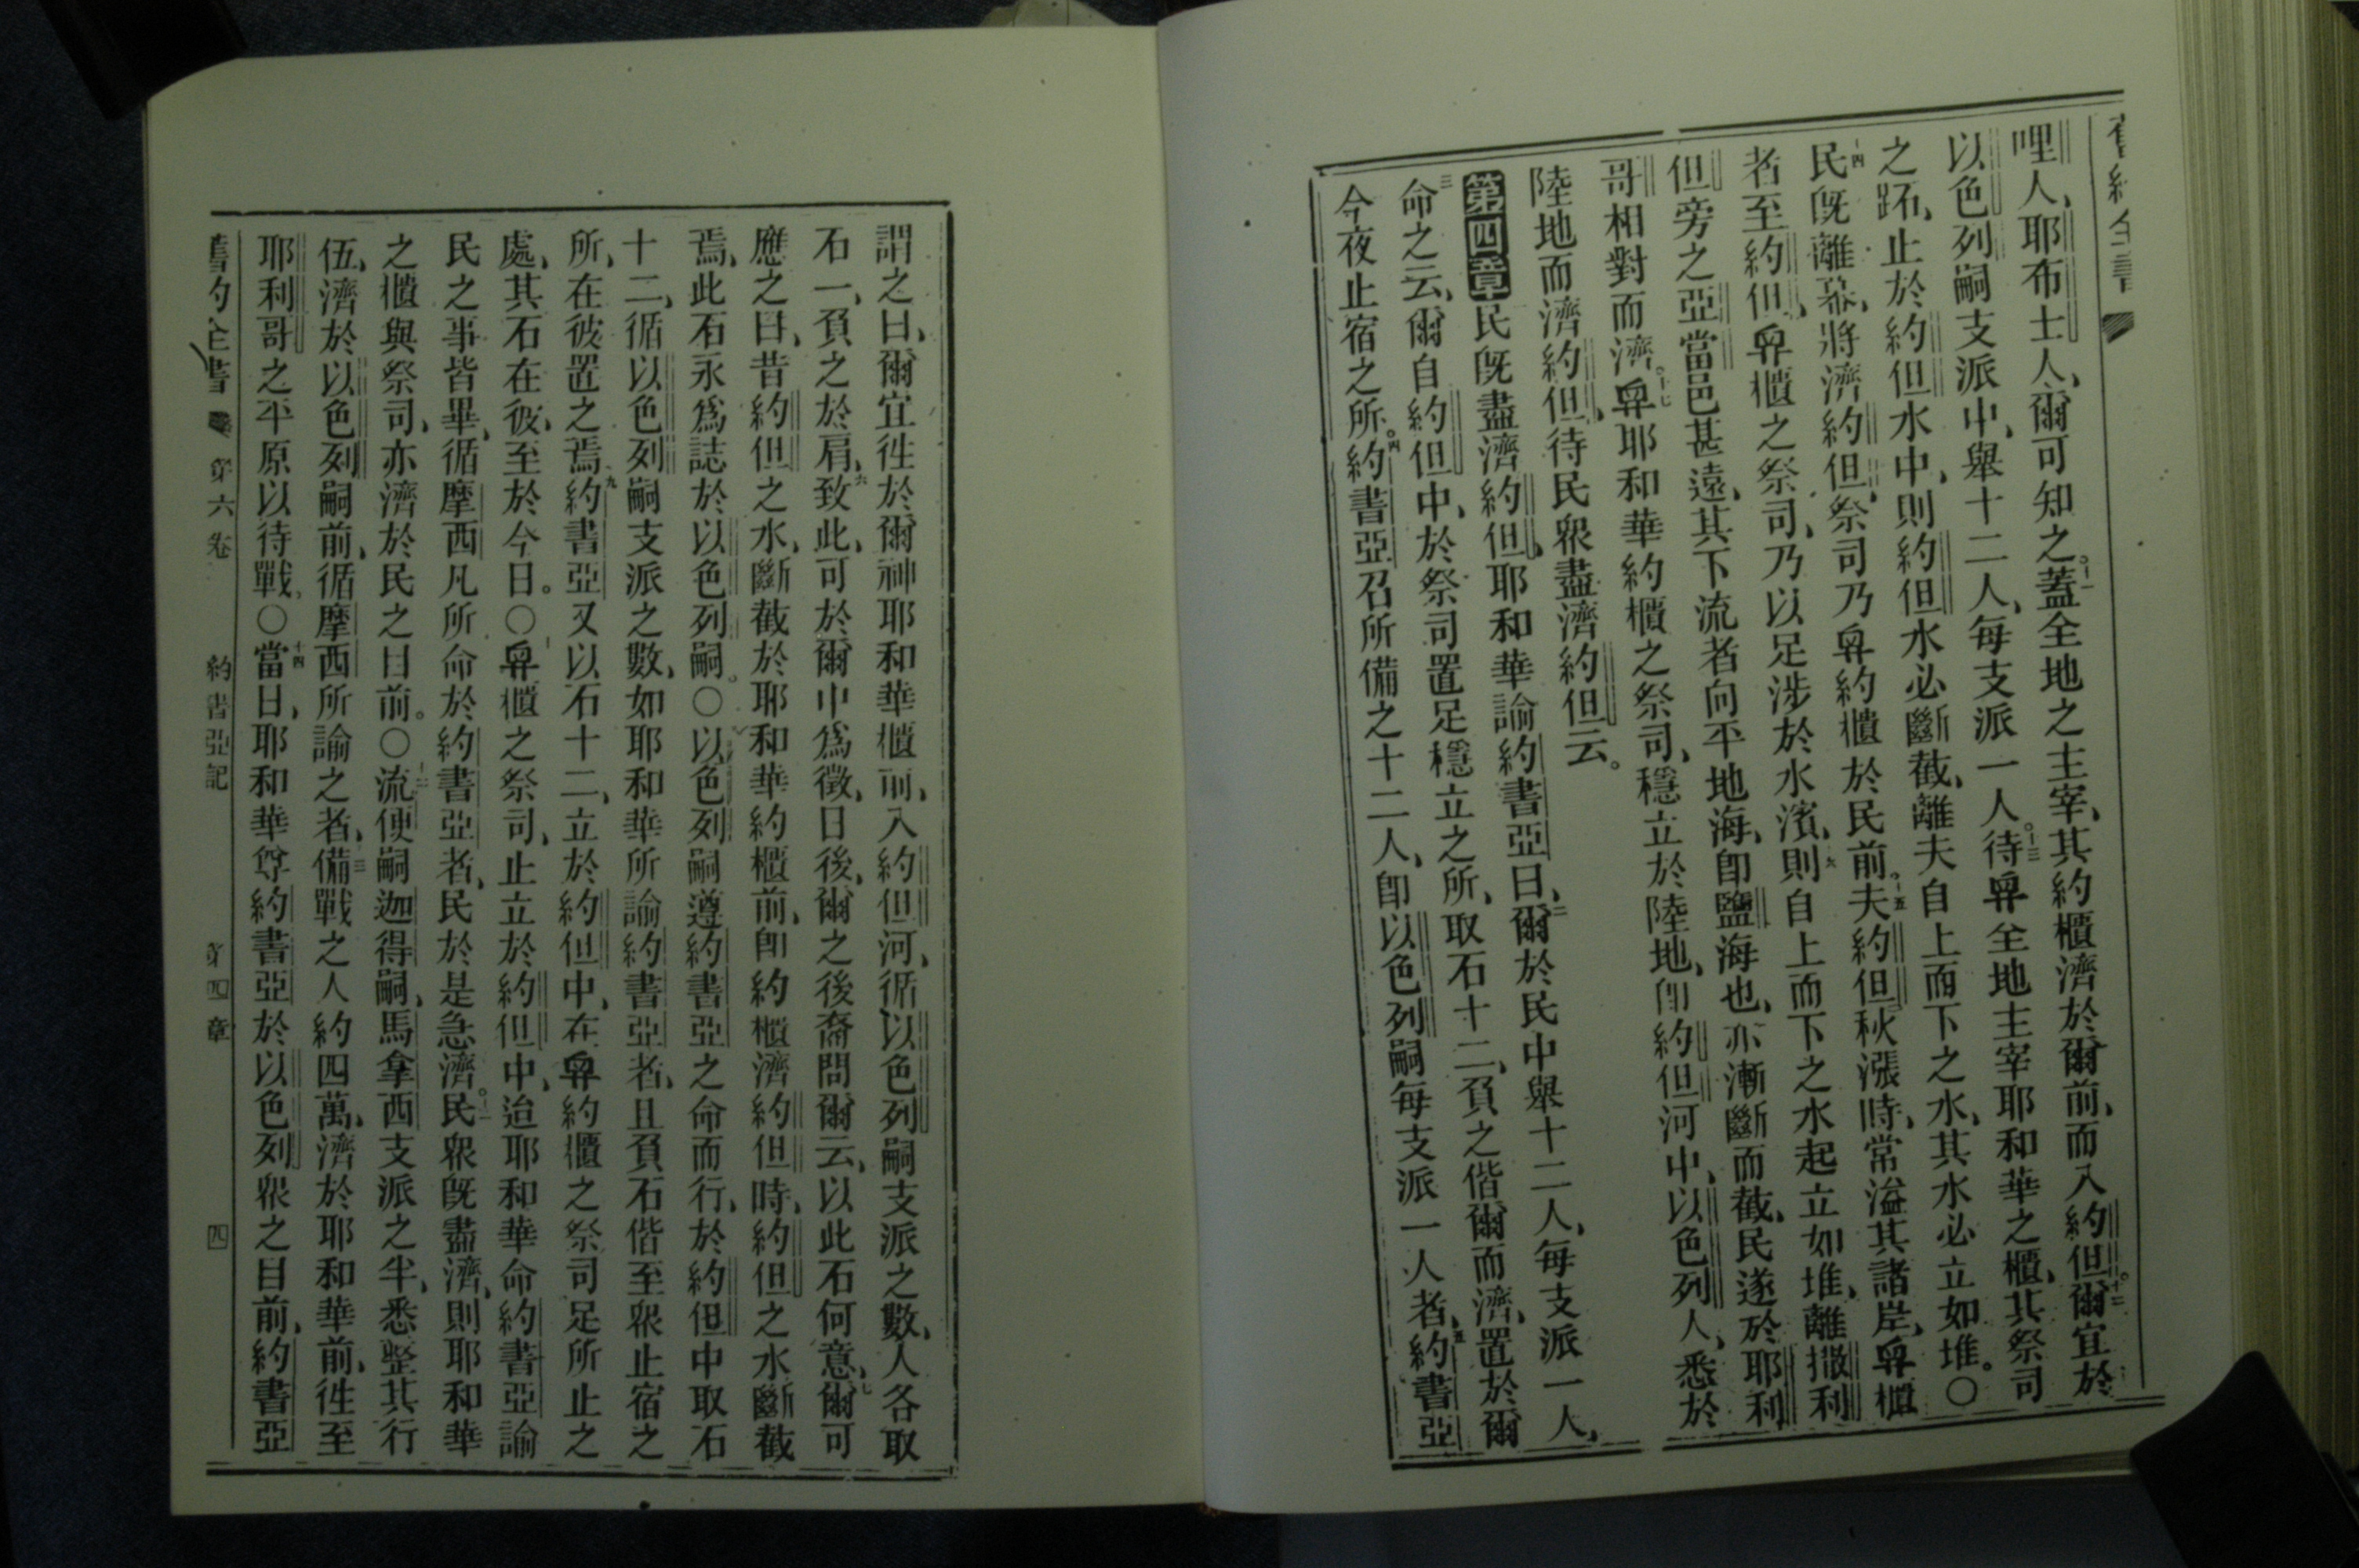 舊約全書
哩人、耶布士人、爾可知之。十一蓋全地之主宰、其約櫃濟於爾前、而入約但。十二爾宜於
以色列嗣支派中、舉十二人、每支派一人。十三待舁全地主宰耶和華之櫃、其祭司
之跖、止於約但水中、則約但水必斷截、離夫自上而下之水、其水必立如堆。〇
十四民旣離幕、將濟約但、祭司乃舁約櫃於民前。十五夫約但秋漲時、常溢其諸岸、舁櫃
者至約但、舁櫃之祭司、乃以足涉於水濱、十六則自上而下之水起立如堆、離撒利
但旁之亞當邑甚遠、其下流者向平地海、卽鹽海也、亦漸斷而截、民遂於耶利
哥相對而濟。十七舁耶和華約櫃之祭司、穩立於陸地、卽約但河中、以色列人、悉於
陸地而濟約但、待民衆盡濟約但云。
第四章民旣盡濟約但、耶和華諭約書亞曰、二爾於民中舉十二人、每支派一人、
三命之云、爾自約但中、於祭司置足穩立之所、取石十二、負之偕爾而濟、置於爾
今夜止宿之所。四約書亞召所備之十二人、卽以色列嗣每支派一人者、五約書亞
謂之曰、爾宜徃於爾神耶和華櫃前、入約但河、循以色列嗣支派之數、人各取
石一、負之於肩、六致此、可於爾中爲徵、日後、爾之後裔問爾云、以此石何意、七爾可
應之曰、昔約但之水、斷截於耶和華約櫃前、卽約櫃濟約但時、約但之水斷截
焉、此石永爲誌於以色列嗣。〇八以色列嗣遵約書亞之命而行、於約但中取石
十二、循以色列嗣支派之數、如耶和華所諭約書亞者、且負石偕至衆止宿之
所、在彼置之焉、九約書亞又以石十二、立於約但中、在舁約櫃之祭司足所止之
處、其石在彼、至於今日。〇十舁櫃之祭司、止立於約但中、迨耶和華命約書亞諭
民之事皆畢、循摩西凡所命於約書亞者、民於是急濟。十一民衆旣盡濟、則耶和華
之櫃與祭司、亦濟於民之目前。〇十二流便嗣迦得嗣、馬拿西支派之半、悉整其行
伍、濟於以色列嗣前、循摩西所諭之者、十三備戰之人約四萬、濟於耶和華前、徃至
耶利哥之平原以待戰。〇十四當日、耶和華尊約書亞於以色列衆之目前、約書亞
舊約全書 第六卷 約書亞記 第四章 四